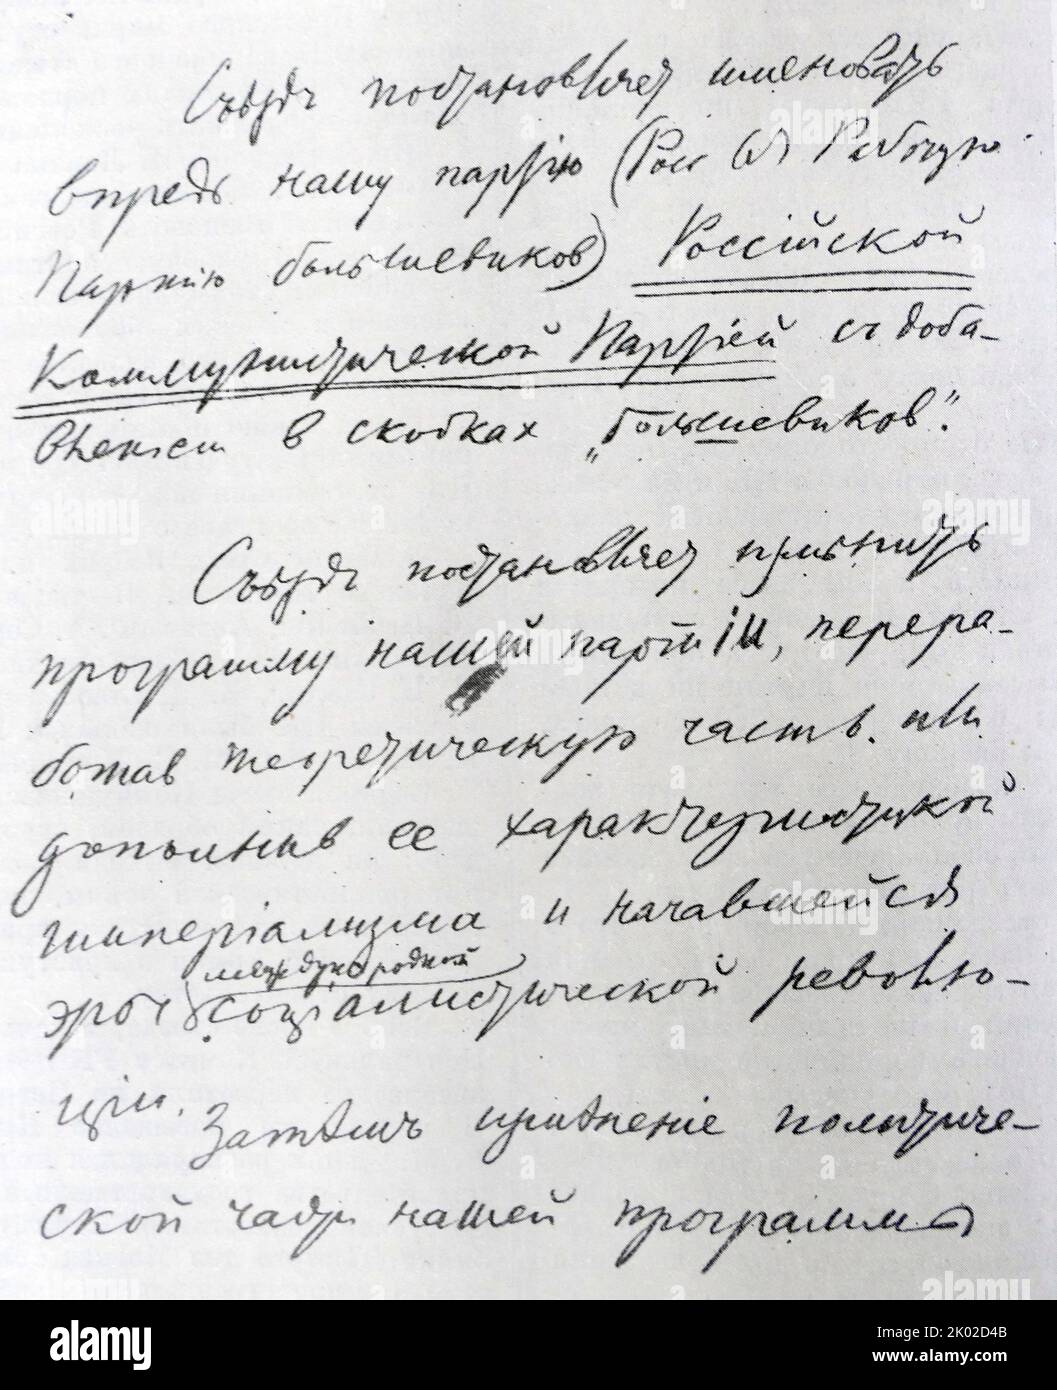 Съѣздъ постановляет именовать
впредь нашу партію (Росс. С.-Д. Рабочую
Партию большевиков) Россійской
Коммунистической Партіей съ доба-
влением в скобках „большевиков“.
Съѣздъ постановляет измѣнить
программу нашей партіи, перера-
ботав теоретическую часть или
дополнив ее характеристикой
империализма и начавшейся
международной
эры соціалистической револю-
ціи.
Затѣмъ измѣнение политиче-
ской части нашей программы
alamy
Image ID: 2K02D4B
www.alamy.com